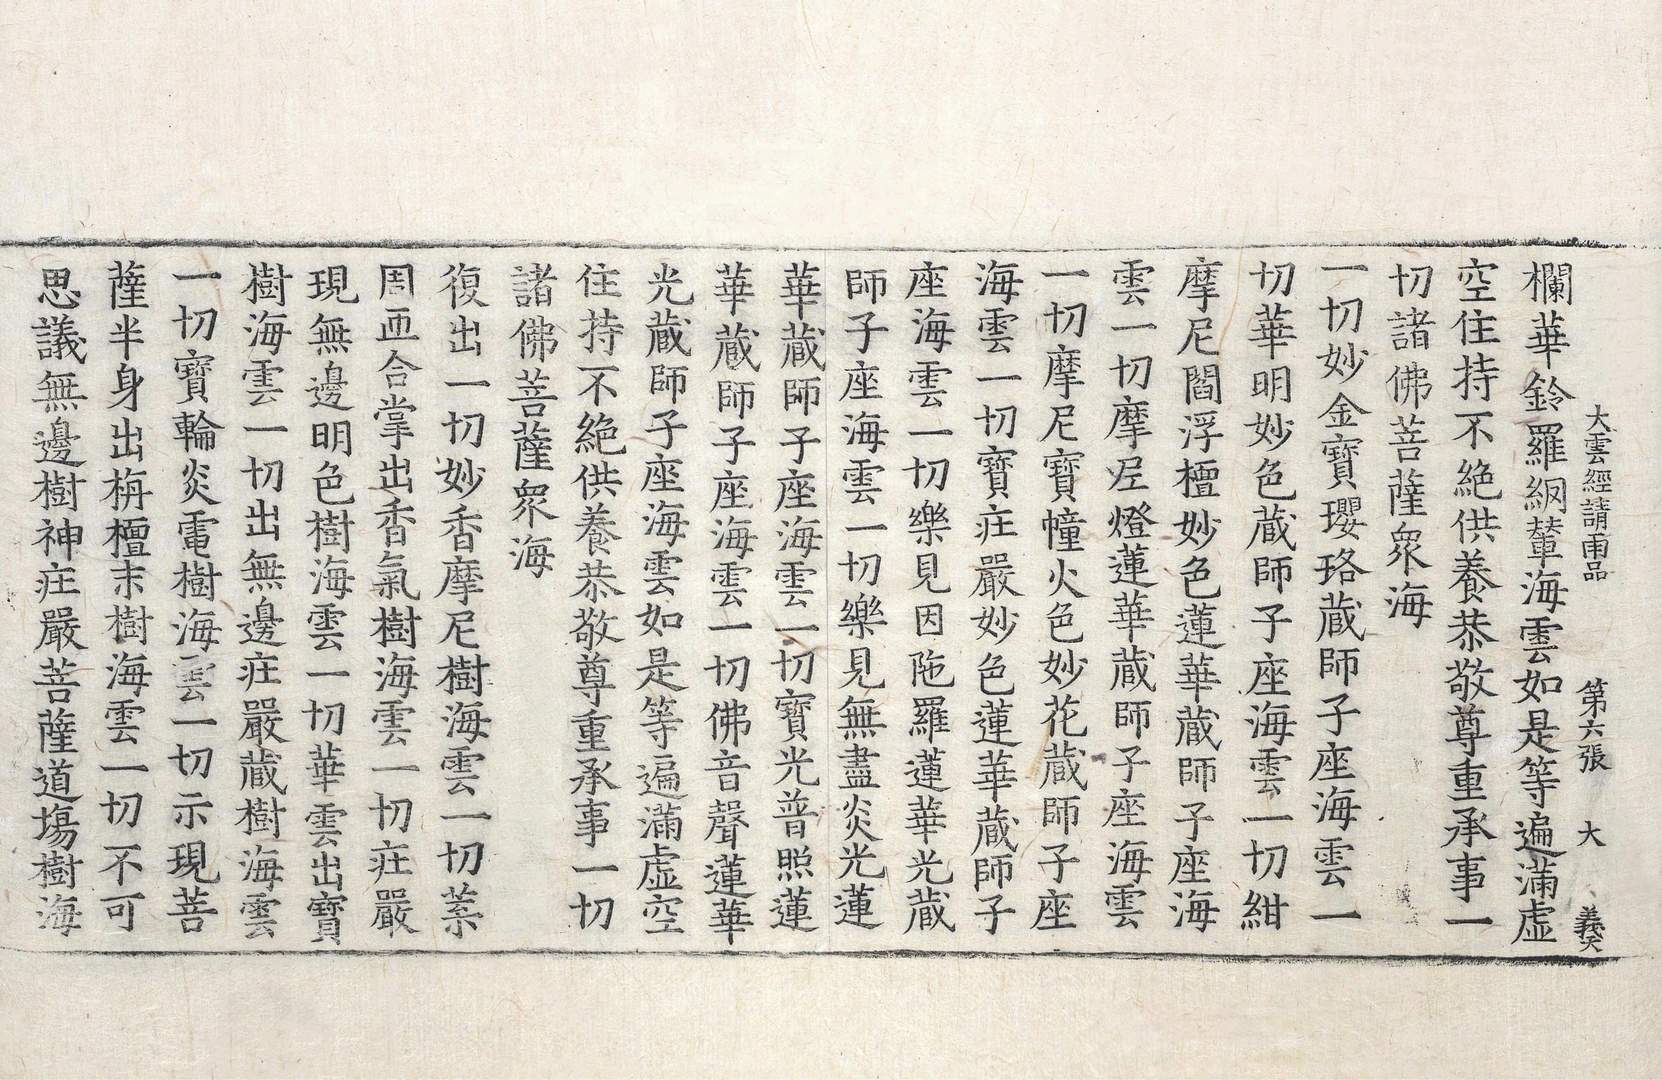 大雲經請雨品 第六張 大 義天
欄華鈴羅網輦海雲如是等遍滿虛
空住持不絶供養恭敬尊重承事一
切諸佛菩薩衆海
一切妙金寶瓔珞蔵師子座海雲一
切華明妙色蔵師子座海雲一切紺
摩尼閻浮檀妙色蓮華蔵師子座海
雲一切摩尼燈蓮華蔵師子座海雲
一切摩尼寶幢火色妙花蔵師子座
海雲一切寶莊嚴妙色蓮華蔵師子
座海雲一切樂見因陁羅蓮華光蔵
師子座海雲一切樂見無盡炎光蓮
華蔵師子座海雲一切寶光普照蓮
華蔵師子座海雲一切佛音聲蓮華
光蔵師子座海雲如是等遍滿虛空
住持不絶供養恭敬尊重承事一切
諸佛菩薩衆海
復出一切妙香摩尼樹海雲一切葉
周帀合掌出香氣樹海雲一切莊嚴
現無邊明色樹海雲一切華雲出寶
樹海雲一切出無邊莊嚴蔵樹海雲
一切寶輪炎電樹海雲一切示現菩
薩半身出栴檀末樹海雲一切不可
思議無邊樹神莊嚴菩薩道場樹海